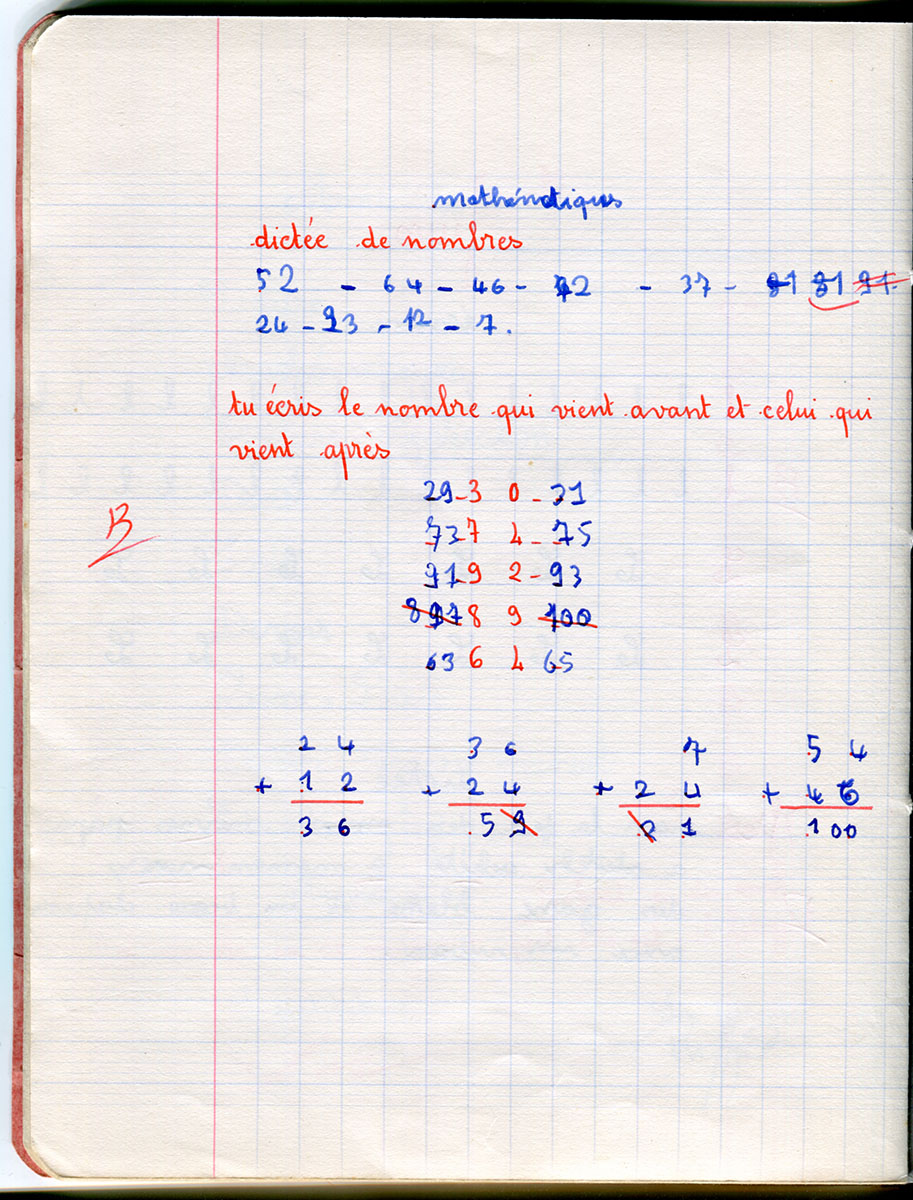 mathématiques
dictée de nombres
52 - 64 - 46 - 42 - 37 - 81 31 91.
24 - 93 - 12 - 7.
tu écris le nombre qui vient avant et celui qui
vient après
29-3 0-31
737 4-75
91-9 2-93
8 8 9 100
63 6 4 65
B
2 4 3 6 7 5 4
+ 1 2 + 2 4 + 2 4 + 4 6
3 6 5 9 2 1 1 00